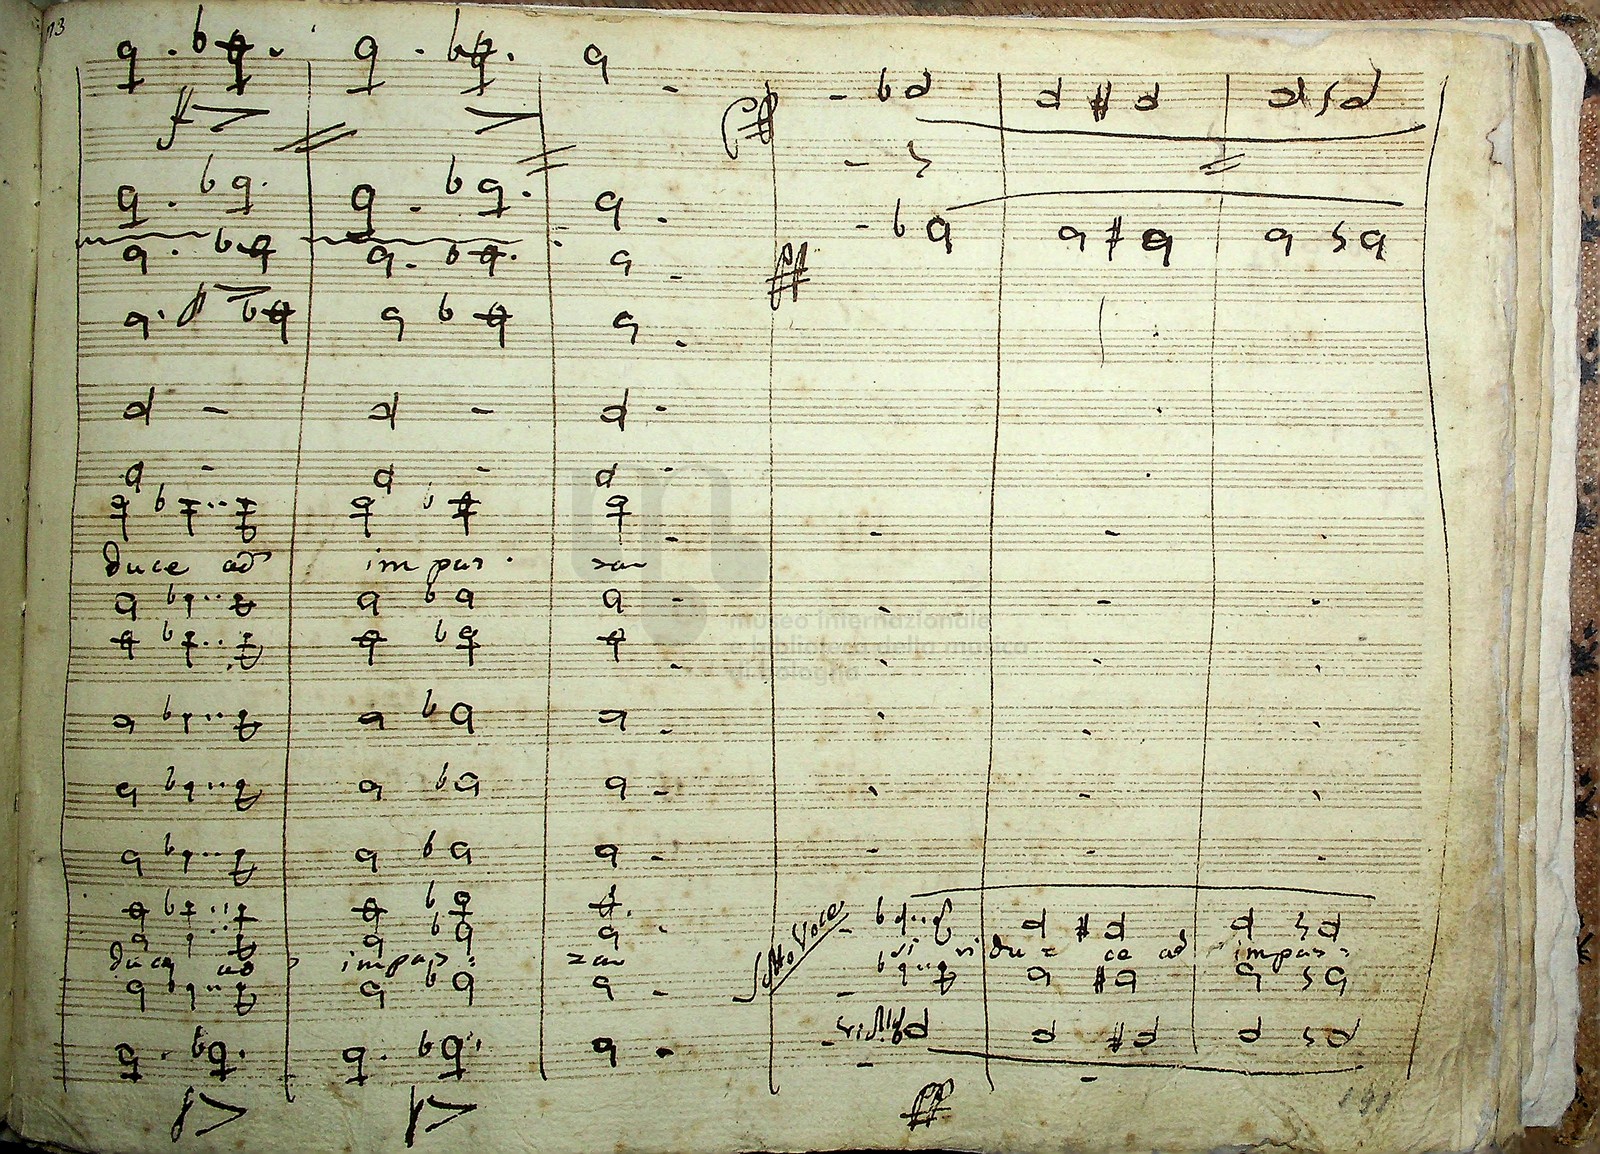 ff
ff
duce ad impar zar
museo internazionale
e biblioteca della musica
di bologna
Sotto Voce
vi vi du = ce ad impar =
duce ad impar = zar
ff
191